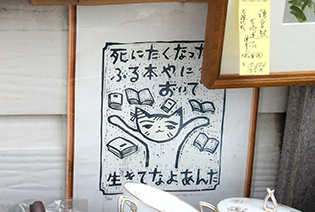 死にたくなった
ぶる本やに
おいで
生きてなよあんた